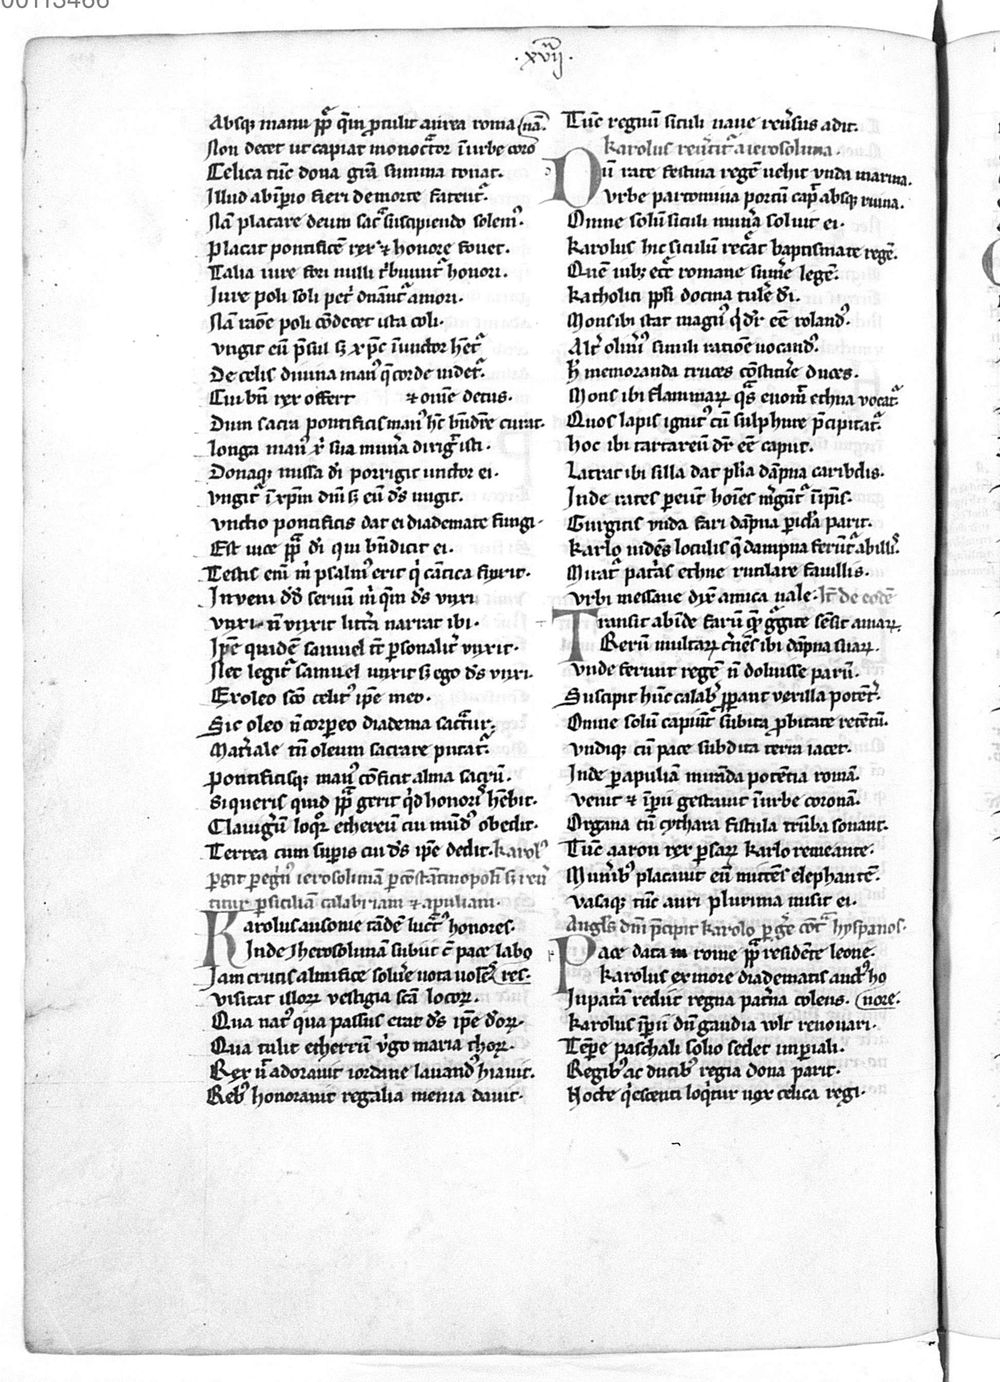 00113466
·xviij·
Absq; manu pp̄ q̄m ꝓtulit aurea roma
Non decet ut capiat monoctor̄ ī urbe coronā.
Celica tūc dona grā summa tonat.
Illud abīperio fieri de morte fatent᷑.
Nā placare deum sac᷑ suscipiendo solem᷒.
Placat pontificē rex ⁊ honore fouet.
Talia iure fori nulli tͥbuunt᷑ honori.
Iure poli soli pet᷑ dn̄ant᷑ amori.
Nā rōne poli cōdecet ista coli.
Vngit eū p̄sul sꝫ xp̄c ī unctor h̄et᷑
De celis diuina man᷒ q̄ corde uidet᷑.
Cui bn̄ rex offert ⁊ om̄e decus.
Dum sacra pontificis man᷒ h̄c bn̄dicͤ curat.
Longa man᷒ xͥ sua mun̄a dirig᷑ isti.
Donaq; missa dͥ porrigit unctor ei.
Vngit᷑ ī xp̄m dn̄i sꝫ eū d̄s ungit.
Vnctio pontificis dat ei diademate fungi.
Est uice pp̄ dͥ qui bn̄dicit ei.
Testis enī mͥ psalm᷒ erit qͥ cātica finxit.
Inueni dd̄ seruū mͥ q̄m d̄s unxi
Vnxi n̄ unxit litt̄a narrat ibi.
Ip̄e quidē samuel tn̄ ꝑsonalit᷑ unxit.
Nec legit᷑ samuel unxit sꝫ ego d̄s unxi.
Ex oleo sc̄o celit᷒ ip̄e meo.
Sic oleo n̄ corꝑeo diadema sacrat᷑.
Mat̄iale tn̄ oleum sacrare putat᷑.
Pontificisq; man᷒ cōficit alma sacrū.
Si queris quid pp̄ gerit qͥd honor᷒ h̄ebit.
Clauig̅ū loqͦr ethereū cui mūd᷒ obedit.
Terrea cum suꝑis cui d̄s ip̄e dedit. Karol᷒
ꝑgit ꝑ egn᷒ ierosolimā ꝑ cōstātinopolī sꝫ reū
titur ꝑ siciliā calabriam ⁊ apuliam.
Karolus ausonie tādē luct᷒ honores.
Inde Iherosolimā subiit c̄ pace labores.
Iam crucis almifice soluͤe uota uolēs
Visitat illor᷑ uestigia sc̄a locor᷑.
Qua nat᷒ qua passus erat d̄s ip̄e dͦor᷑.
Qua tulit ethereū uͥgo maria thor᷑.
Rex n̄ adorauit iordane lauand᷒ hiauit.
Reb᷒ honorauit regalia menia dauit.
Tūc regnū siculi naue reu̅sus adit.
Karolus reu̅tit᷑ a ierosolima.
Dū rate festina regē uehit unda marina.
Vrbe partomina portū cap᷑ absq; ruina.
Omne solū siculi mun̄a soluit ei.
Karolus hic siculū recͤat baptismate regē.
Quē iubꝫ eccͤ romane sumͤe legē.
Katholici pp̄li docma tulͤe dͥ.
Mons ibi stat magn᷒ qͥ dr̄ eē roland᷒.
Altͤ oliuͤ᷒ simili ratiōe uocand᷒.
H̄ memoranda truces cōstituͤe duces.
Mons ibi flammar᷑ q̄s euom̄ ethna uocat᷑
Quos lapis ignit᷒ cū sulphure p̄cipitat᷑.
Hoc ibi tartareū dr̄ eē caput.
Latrat ibi silla dat plͥa dāpna caribdis.
Inde rates ꝑeūt hoīes mͤgunt᷑ ī ip̄is.
Gurgitis unda fari dāpna ꝑicl̄a parit.
Karlo uidēs loculis q̄ dampna ferūt᷑ ab illis.
Mirat᷑ pat̄as ethne rutilare fauillis.
Vrbi messane dix̄ amica uale. It̄ de eodē
Transit abīde farū qͣ g̃gite sēsit amar᷑.
Rerū multar᷑ cͤnēs ibi dāpna suar᷑.
Vnde ferunt regē n̄ doluisse parū.
Suscipit hūc calab᷑ pp̄ant uexilla potēt᷑.
Omne solū capiūt᷑ subita ꝓbitate retētū.
Vndiq; cū pace subdita terra iacet.
Inde ꝑ apuliā mirāda potētia romā.
Venit ⁊ īꝑii gestauit ī urbe coronā.
Organa cū cythara fistula tr̄uba sonant.
Tūc aaron rex ꝑsar᷑ Karlo remeante.
Munͥb᷒ placauit eū mittēs elephantē.
Vasaq; tūc auri plurima misit ei.
Angl̄s dn̄i p̄cipit karolo ꝑgͤe cōt᷑ hyspanos.
Pace data rome pp̄ residēte leone.
Karolus ex more diadematis auct᷒ honore.
In pat̄ā rediit regna pat̄na colens.
Karolus īꝑii dn̄ gaudia uolt renouari.
Tēpͤe paschali solio sedet imꝑiali.
Regib᷒ ac ducib᷒ regia dona parit.
Nocte qͥescenti loqͥtur uox celica regi.